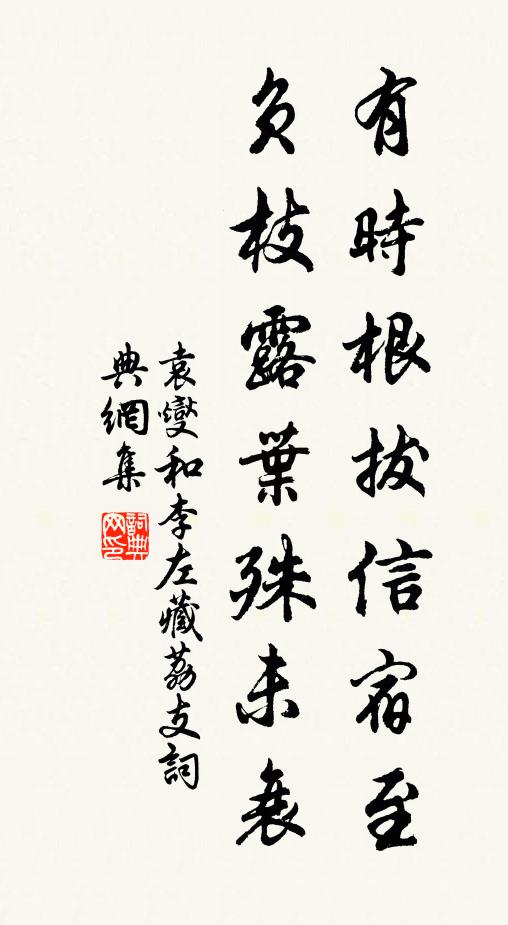 有時根拔信宿至
负枝露葉殊未衰
袁燮和李左藏荔支詞
典網集
詞典
网印